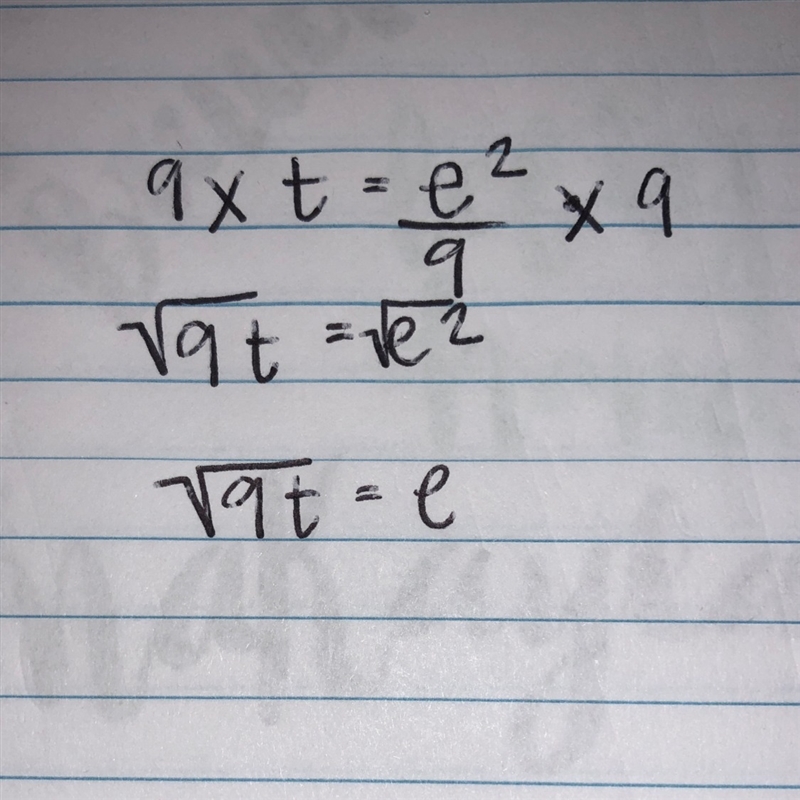 9 × t = e²/9 × 9
√9t = √e²
√9t = e